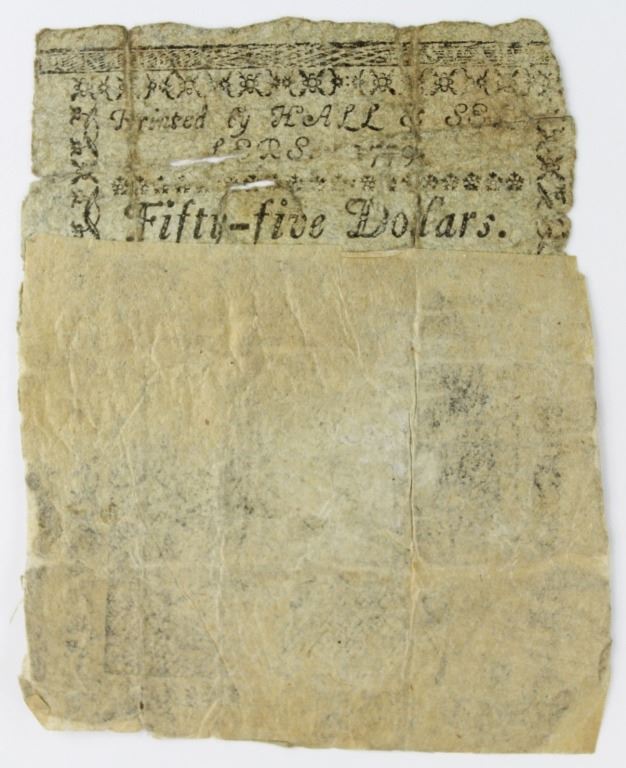 Printed by HALL & SEL-
LERS. 1779.
Fifty-five Dollars.